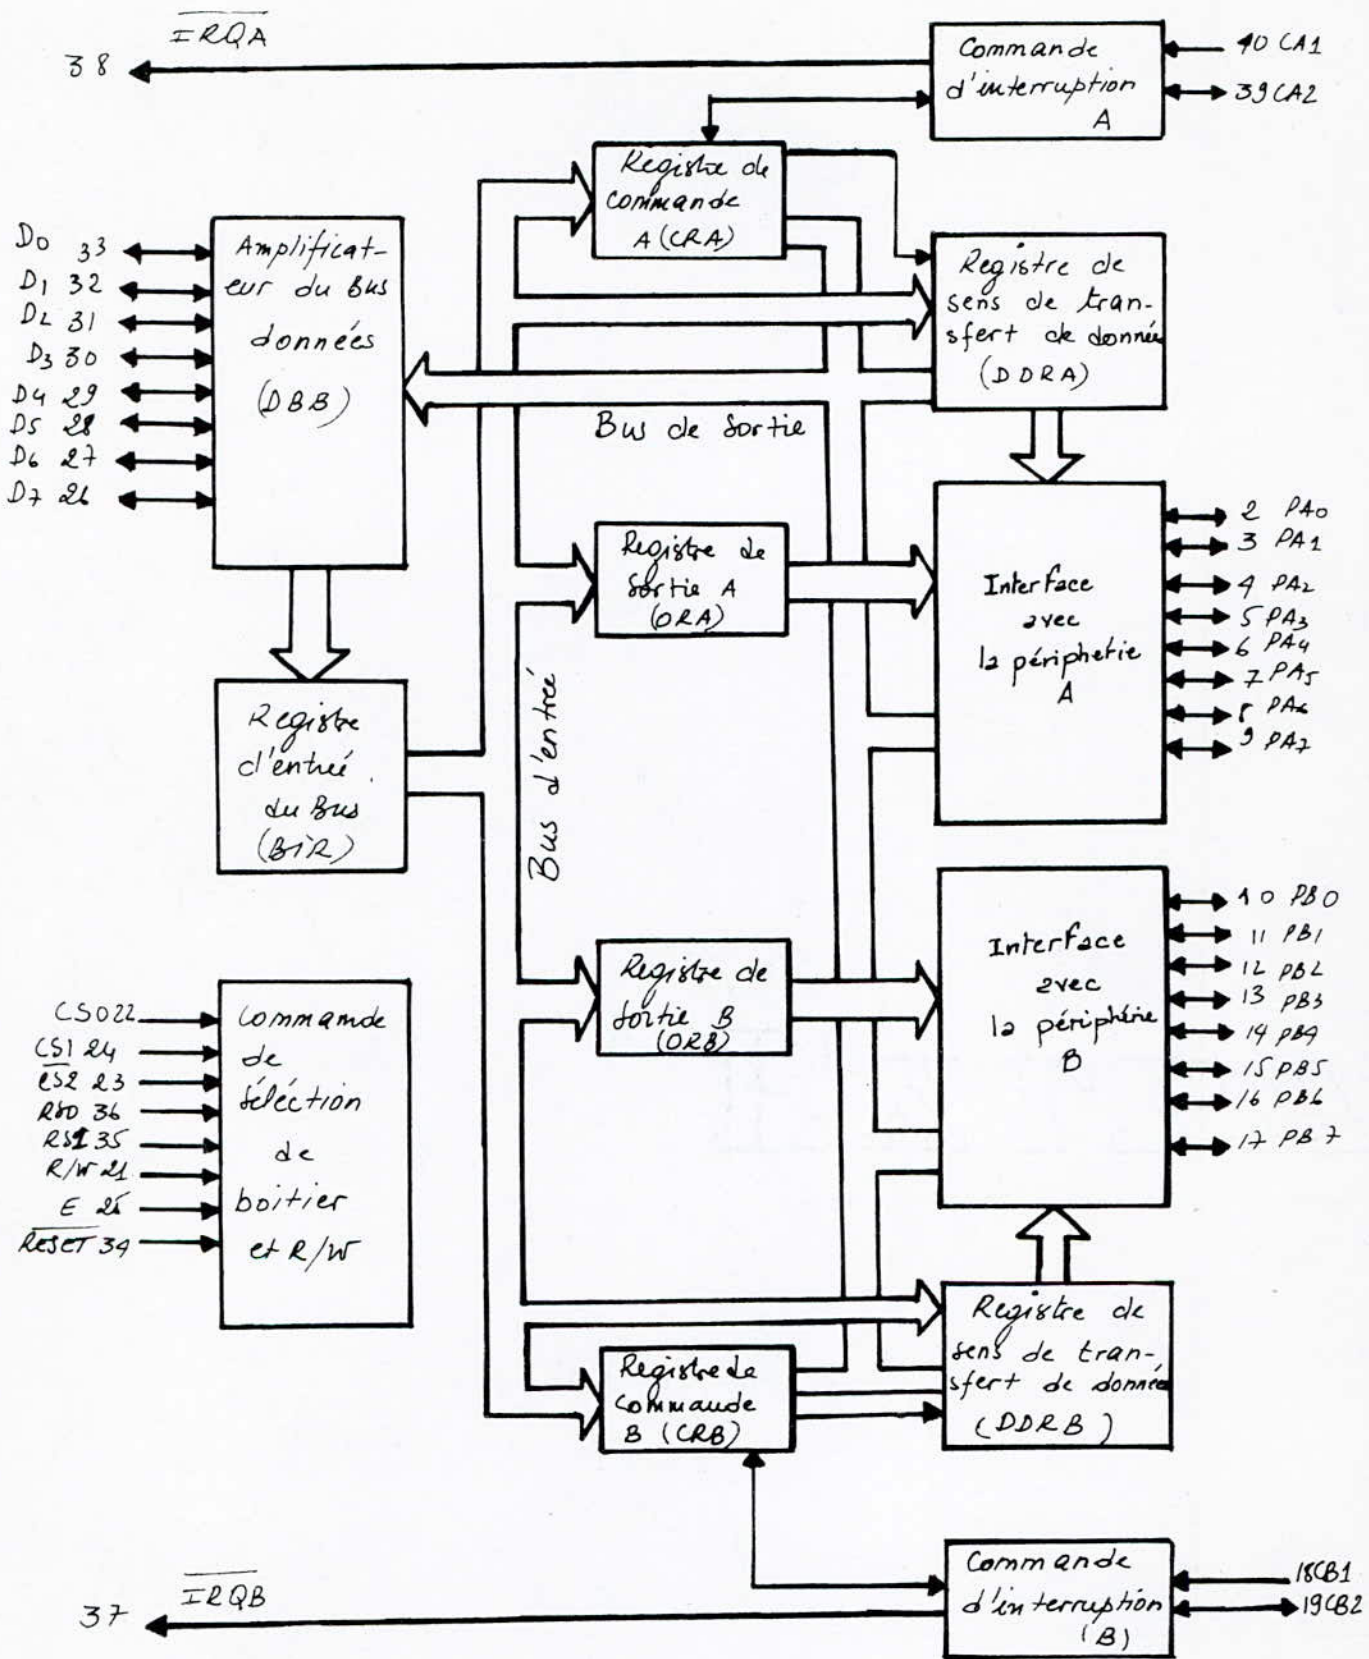 IRQA
38
Commande
d'interruption
A
40 CA1
39 CA2
Registre de
commande
A (CRA)
D0 33
D1 32
D2 31
D3 30
D4 29
D5 28
D6 27
D7 26
Amplificat-
eur du Bus
données
(DBB)
Registre de
sens de tran-
sfert de donnée
(DDRA)
Bus de Sortie
Registre de
Sortie A
(ORA)
Interface
avec
la périphetie
A
2 PA0
3 PA1
4 PA2
5 PA3
6 PA4
7 PA5
8 PA6
9 PA7
Registre
d'entrée
du Bus
(BiR)
Bus d'entrée
Registre de
Sortie B
(ORB)
Interface
avec
la périphérie
B
10 PB0
11 PB1
12 PB2
13 PB3
14 PB4
15 PB5
16 PB6
17 PB7
CS0 22
CS1 24
CS2 23
RS0 36
RS1 35
R/W 21
E 25
RESET 34
Commande
de
Séléction
de
boitier
et R/W
Registre de
commande
B (CRB)
Registre de
sens de tran-
sfert de donnée
(DDRB)
Commande
d'interruption
(B)
18CB1
19CB2
IRQB
37